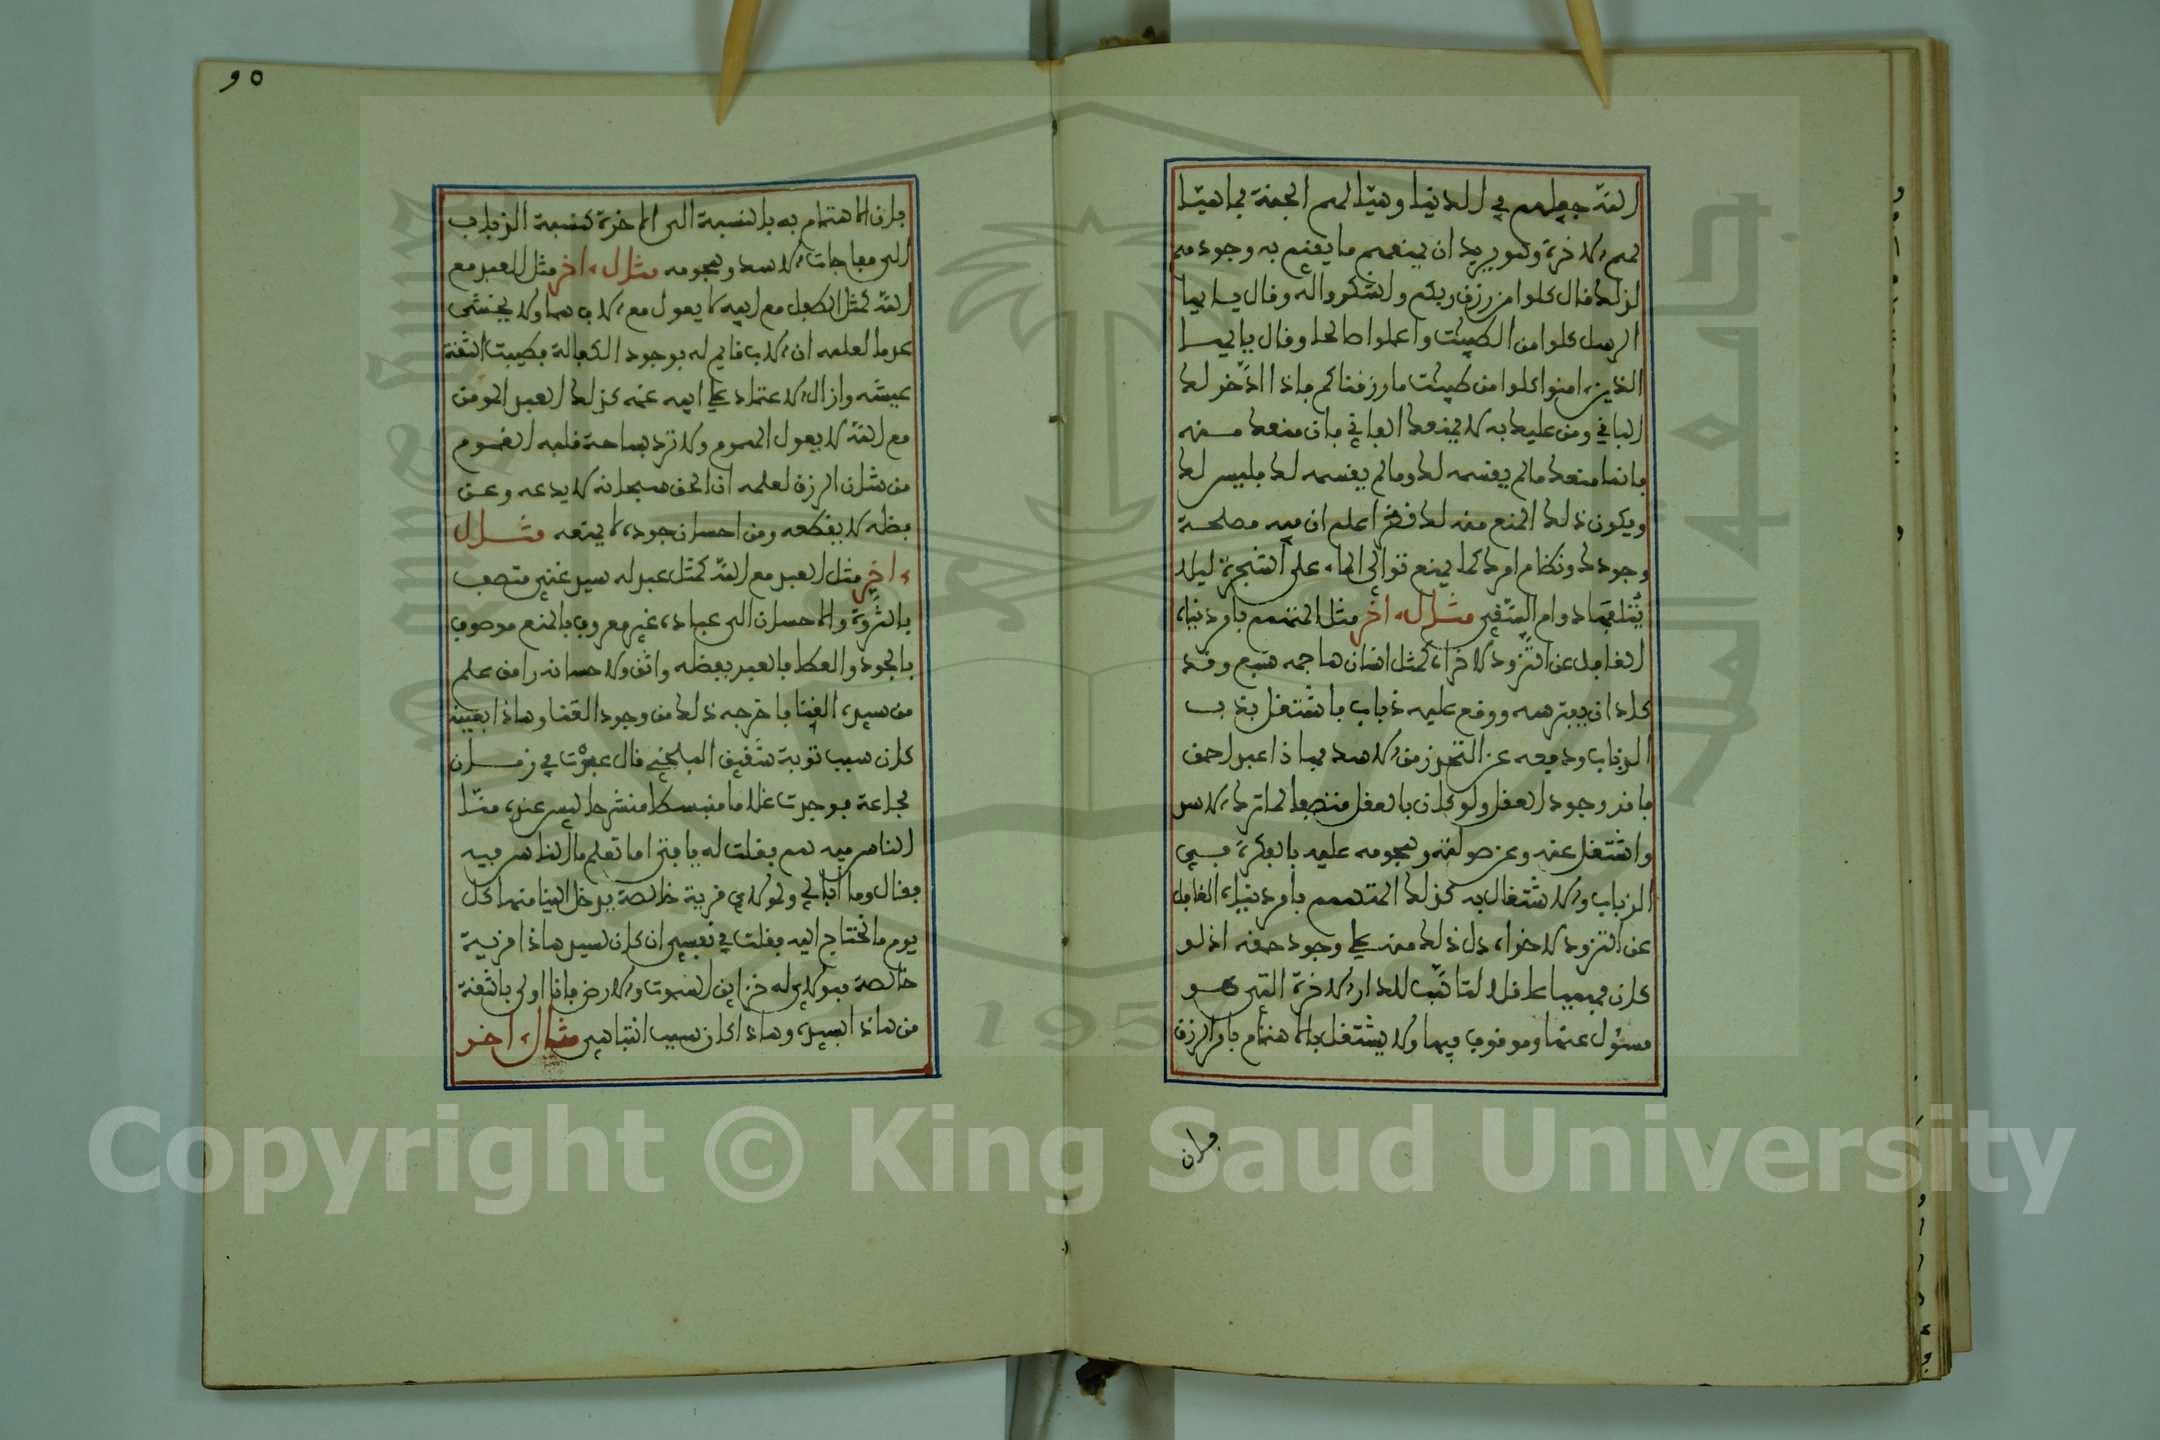 الله جعلهم في الدنيا وهيا لهم الجنة بما هيا
لهم الاخرة وهو يريد ان يمنحهم ما يقيم به وجودهم
لذلك قال كلوا من رزق ربكم واشكروا له وقال يا ايها
الرسل كلوا من الطيبت واعملوا صالحا وقال يا ايها
الذين ءامنوا كلوا من طيبت ما رزقناكم فاذا ادخر لك
الباقي ومن عليك به لا يمنعك الفاني فان منعك منه
فانما منعك ما لم يقسمه لك وما لم يقسمه لك فليس لك
ويكون ذلك المنع منه لك نظرا علم ان فيه مصلحة
وجودك ونظام امرك كما يمنع توالي الماء على الشجرة ليلا
يتلفها دوام السقي مثال ءاخر مثل المهتم بامر دنياه
الغافل عن التزود لاخراه كمثل انسان هاجمه سبع وقد
كاد ان يفترسه ووقع عليه ذباب فاشتغل بذب
الذباب ودفعه عن التحرز من الاسد فهاذا عبد احمق
فاقد وجود العقل ولو كان بالعقل متصفا لما ترك الاسد
واشتغل عنه وعن صولته وهجومه عليه بالفكرة في
الذباب والاشتغال به كذلك المهتم بامر دنياه الغافل
عن التزود لاخراه دل ذلك منه على وجود حمقه اذ لو
كان فهيما عاقلا لتاهب للدار الاخرة التي هو
مسئول عنها وموقوف فيها ولا يشتغل بالاهتمام بامر الرزق
فان
٩٥
فان الاهتمام به بالنسبة الى الاخرة كنسبة الذباب
الى مفاجات الاسد وهجومه مثال ءاخر مثل العبد مع
الله كمثل الطفل مع ابيه لا يعول مع الاب هما ولا يخشى
عدما لعلمه ان الاب قايم له بوجود الكفالة فطيبت الثقة
عيشه وازال الاعتماد على ابيه غمه كذلك العبد المومن
مع الله لا يعول الهموم ولا ترد بساحة قلبه الغموم
من شان الرزق لعلمه ان الحق سبحانه لا يدعه وعن
فضله لا يقطعه ومن احسان جوده لا يمنعه مثال
ءاخر مثل العبد مع الله كمثل عبد له سيد غني متصف
بالثروة والاحسان الى عباده غير معروف بالمنع موصوف
بالجود والعطا فالعبد بفضله واثق ولاحسانه رامق علم
من سيده الغنا فاخرجه ذلك من وجود العنا وهاذا بعينه
كان سبب توبة شقيق البلخي قال عبرت في زمان
مجاعة فوجدت غلاما منبسطا منشرحا ليس عنده مما
الناس فيه هم فقلت له يا فتى اما تعلم ما الناس فيه
فقال وما ابالي ولمولاي قرية خالصة يدخل الينا منها كل
يوم ما نحتاج اليه فقلت في نفسي ان كان لسيد هاذا قرية
خالصة فمولاي له خزاين السموت والارض فانا اولى بالثقة
من هاذا بسيده وهاذا كان سبب انتباهي مثال ءاخر
Copyright © King Saud University
1957